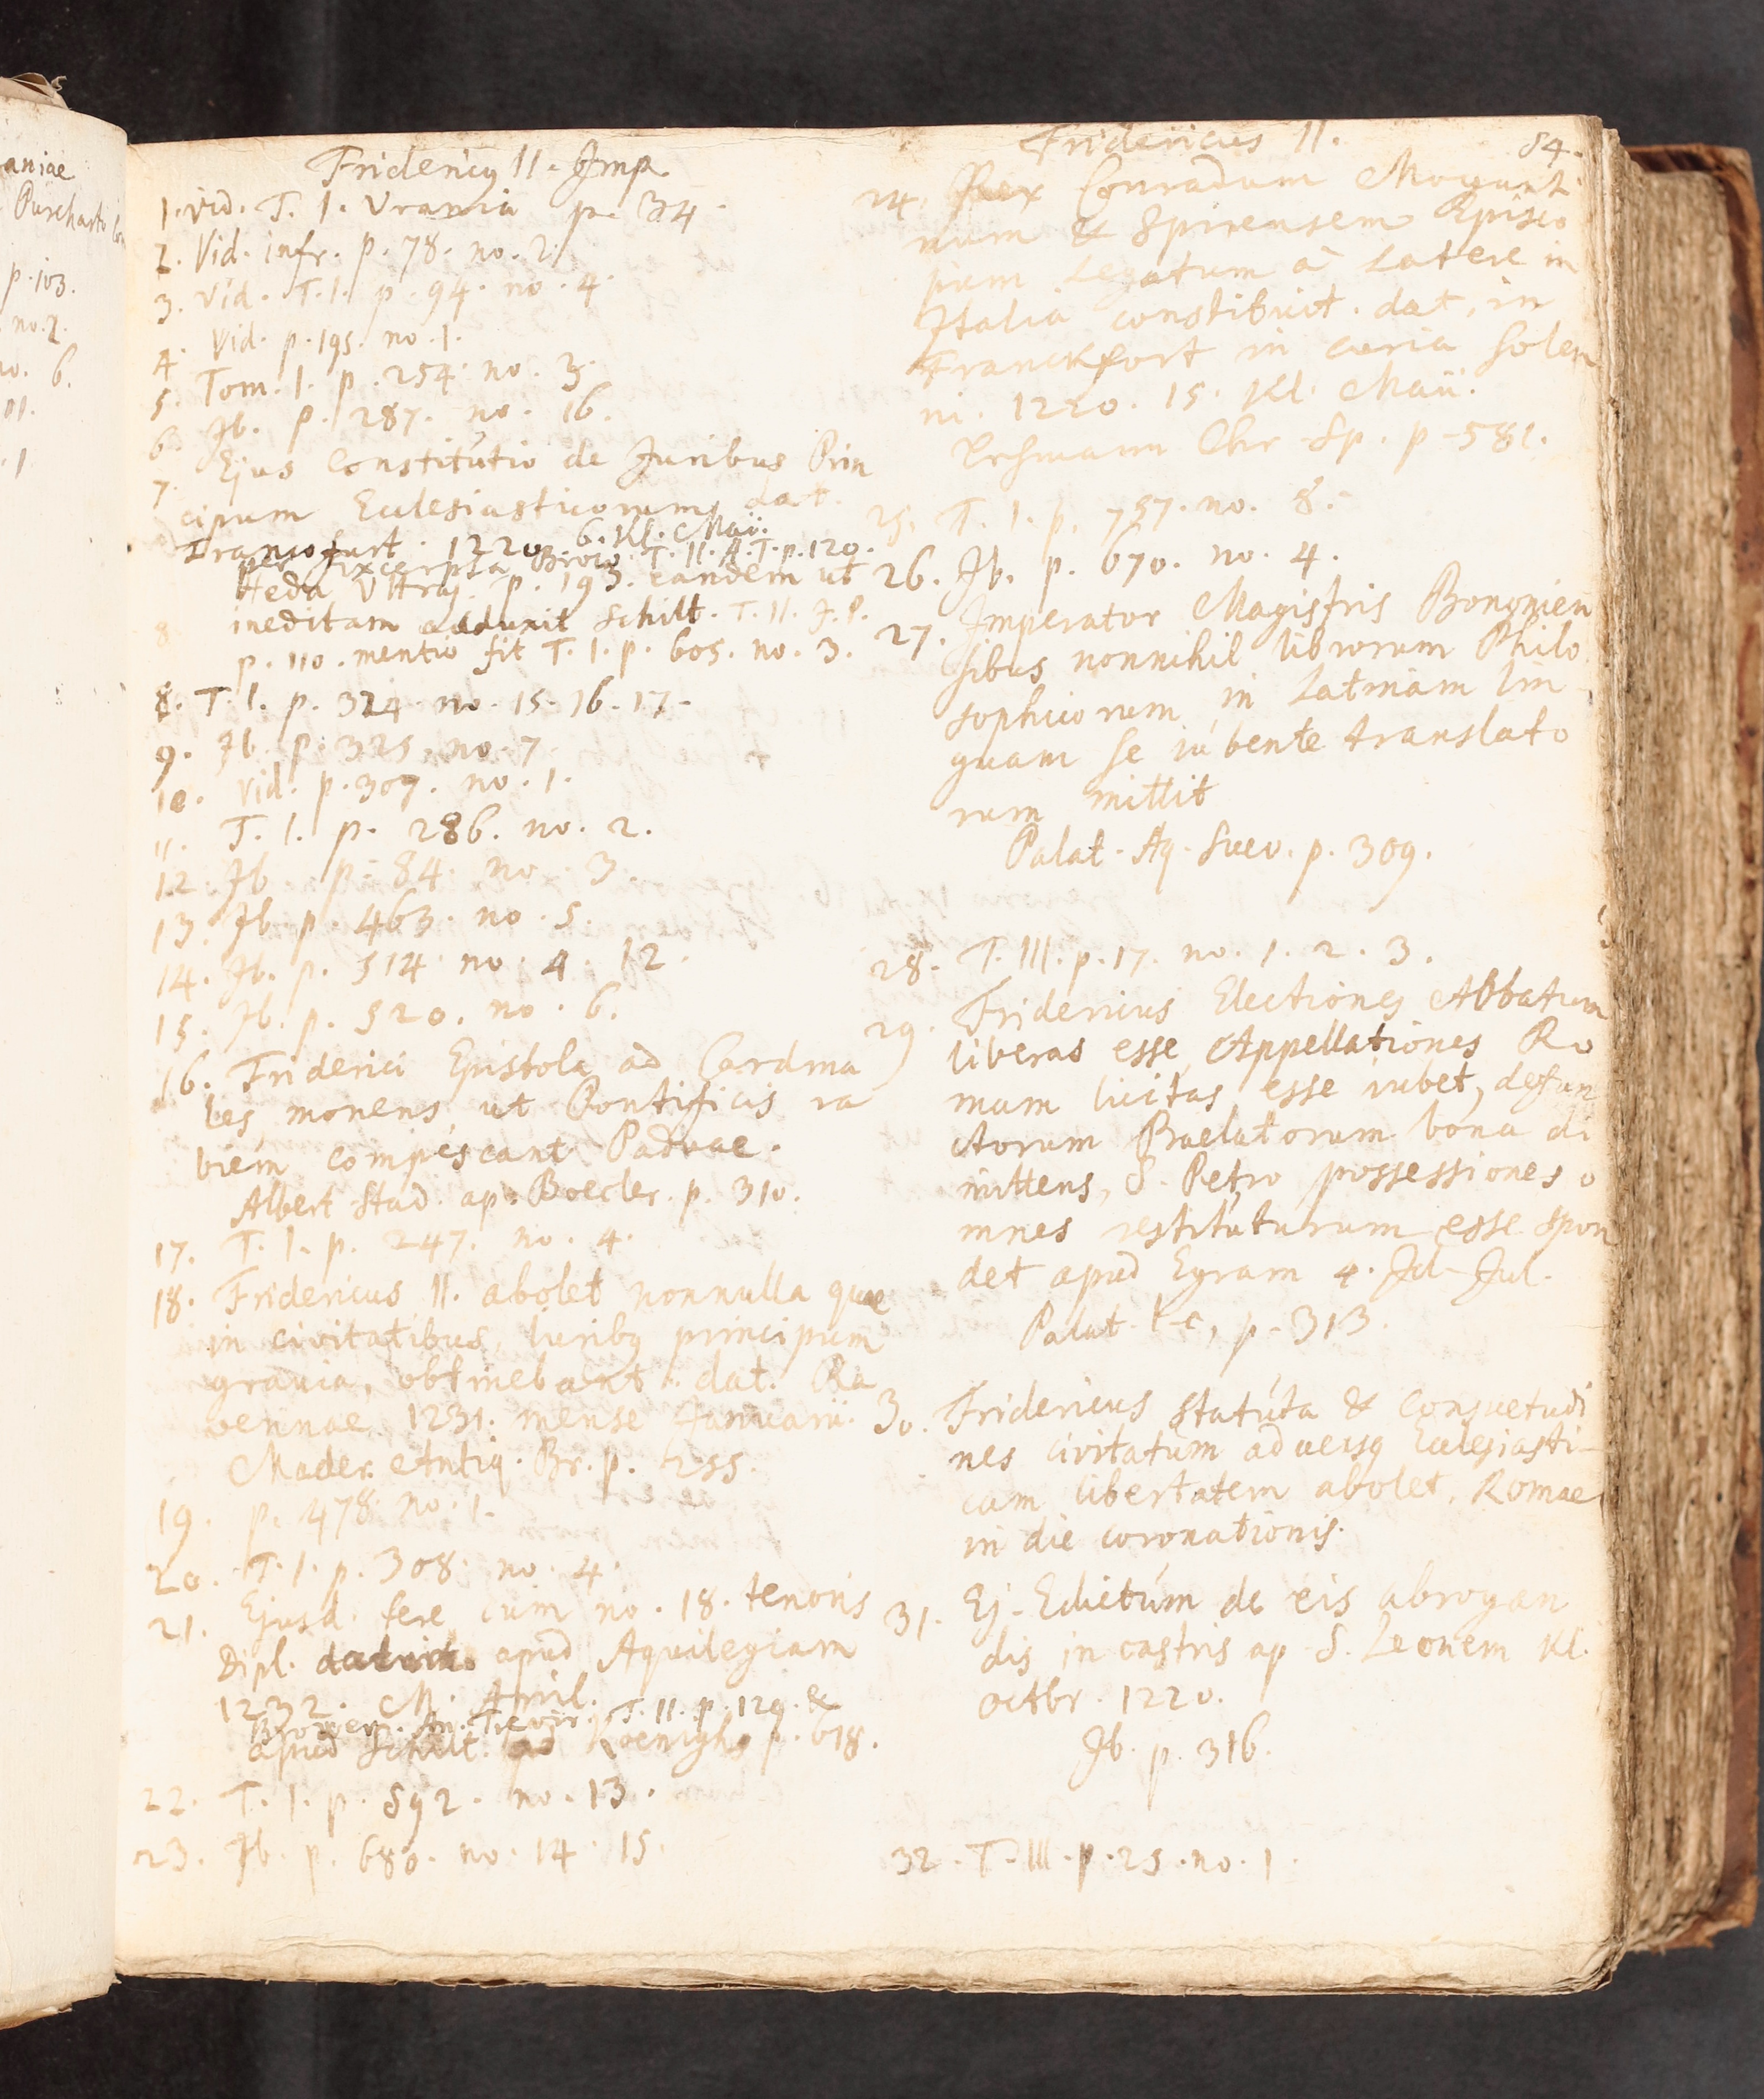 aniae
Purchardi
p. 103.
no. 2.
no. 6.
01.
. 1
Fridericus II. Imp.
1. vid. T. I. Urania p. 34
2. Vid. infr. p. 78. no. 2.
3. vid. T. I. p. 94. no. 4.
4. Vid. p. 195. no. 1.
5. Tom. I. p. 254. no. 3.
6. Ib. p. 287. no. 16.
7. Ejus Constitutio de Juribus Prin
cipum Ecclesiasticorum dat.
Francofurt. 1220. 6. Kl. Maii.
per Excerpta Brow. T. II. A. T. p. 120.
Heda Ultraj. p. 193. eandem ut
ineditam adducit Schilt. T. II. J. P.
p. 110. mentio fit T. I. p. 605. no. 3.
8. T. I. p. 324. no. 15. 16. 17.
9. Ib. p. 325. no. 7
10. vid. p. 309. no. 1.
11. T. I. p. 286. no. 2.
12. Ib. p. 84. no. 3.
13. Ib. p. 463. no. 5.
14. Ib. p. 514. no. 4. 12.
15. Ib. p. 520. no. 6.
16. Friderici Epistola ad Cardina
les monens, ut Pontificis ra
biem compescant Paduae.
Albert Stad. ap. Boecler. p. 310.
17. T. I. p. 247. no. 4.
18. Fridericus II. abolet nonnulla quae
in civitatibus, iuribus principum
gravia, obtinebant. dat. Ra
vennae 1231. mense Januarii.
Mader. Antiq. Br. p. 255.
19. p. 478. no. 1.
20. T. I. p. 308. no. 4.
21. Ejusd. fere cum no. 18. tenoris
Dipl. apud Aquilegiam
1232. M. April.
Brower. An. Trevir. T. II. p. 129. &
apud Schilt. ad Koenigh. p. 618.
22. T. I. p. 592. no. 13.
23. Ib. p. 680. no. 14. 15.
Fridericus II.
84.
24. Rex Conradum Mogunti
num & Spirensem Episco
pum Legatum à Latere in
Italia constituit. dat. in
Franckfort in curia solen
ni. 1220. 15. Kl. Maii.
Lehmann Chr. Sp. p. 581.
25. T. I. p. 757. no. 8.
26. Ib. p. 670. no. 4.
27. Imperator Magistris Bononien
sibus nonnihil librorum Philo
sophicorum in Latinam lin
guam se iubente translato
rum mittit
Palat. Aq. Suev. p. 309.
28. T. III. p. 17. no. 1. 2. 3.
29. Fridericus Electiones Abbatum
liberas esse, Appellationes Ro
mam licitas esse iubet, defun
ctorum Praelatorum bona di
mittens, S. Petro possessiones o
mnes restituturum esse spon
det apud Egram 4. Id. Jul.
Palat. l. c. p. 313.
30. Fridericus statuta & Consuetudi
nes civitatum adversus Ecclesiasti-
cam libertatem abolet. Romae
in die coronationis.
31. Ej. Edictum de eis abrogan
dis in castris ap S. Leonem Kl.
octbr. 1220.
Ib. p. 316.
32. T. III. p. 25. no. 1.